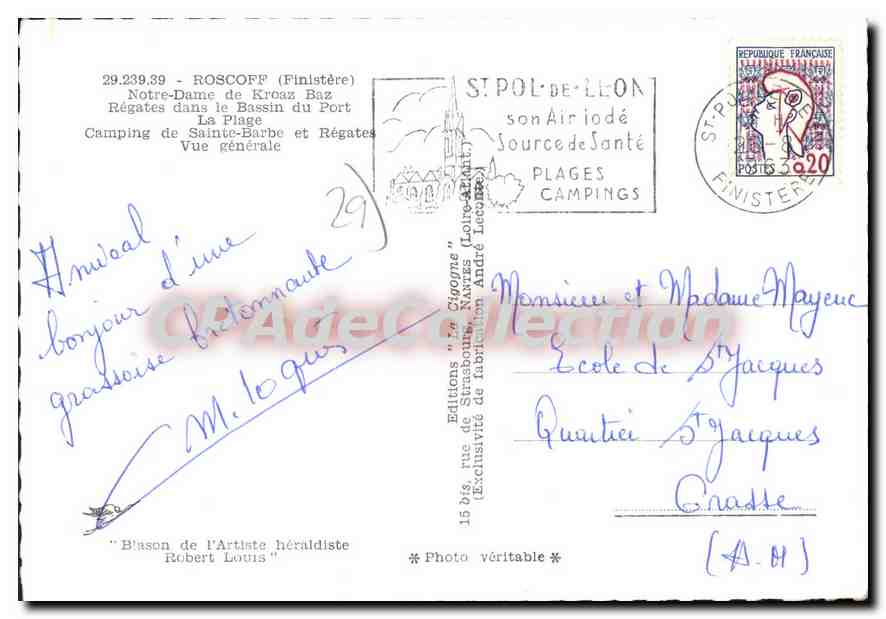 29.239.39 - ROSCOFF (Finistère)
Notre-Dame de Kroaz Baz
Régates dans le Bassin du Port
La Plage
Camping de Sainte-Barbe et Régates
Vue générale
29
Amical
bonjour d'une
grassoise bretonnante
M. Loqués
"Blason de l'Artiste héraldiste
Robert Louis"
ST POL-DE-LEON
son Air iodé
Source de Santé
PLAGES
CAMPINGS
REPUBLIQUE FRANÇAISE
POSTES 0,20
FINISTERE
Editions "La Cigogne"
15 bis, rue de Strasbourg, NANTES (Loire-Atlant.)
(Exclusivité de fabrication André Leconte.)
* Photo véritable *
Monsieur et Madame Mayenc
Ecole de St Jacques
Quartier St Jacques
Grasse
(A.M)
CPAdeCollection